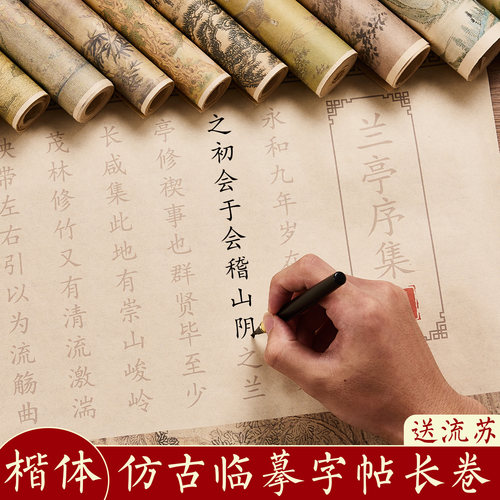 兰亭序集
永和九年岁在
之初会于会稽山阴之兰
亭修禊事也群贤毕至少
长咸集此地有崇山峻岭
茂林修竹又有清流激湍
映带左右引以为流觞曲
送流苏
楷体 仿古临摹字帖长卷